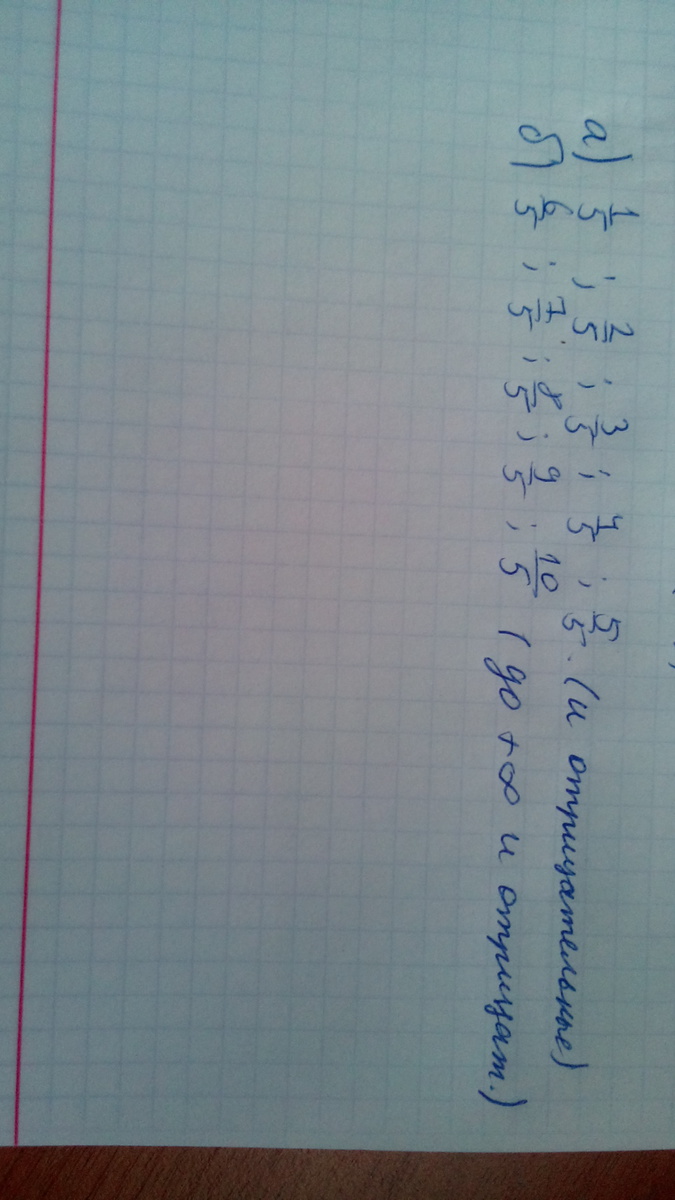 а) 1/5 ; 2/5 ; 3/5 ; 4/5 ; 5/5 . (и отрицательные)
б) 6/5 ; 7/5 ; 8/5 ; 9/5 ; 10/5 (до +∞ и отрицат.)